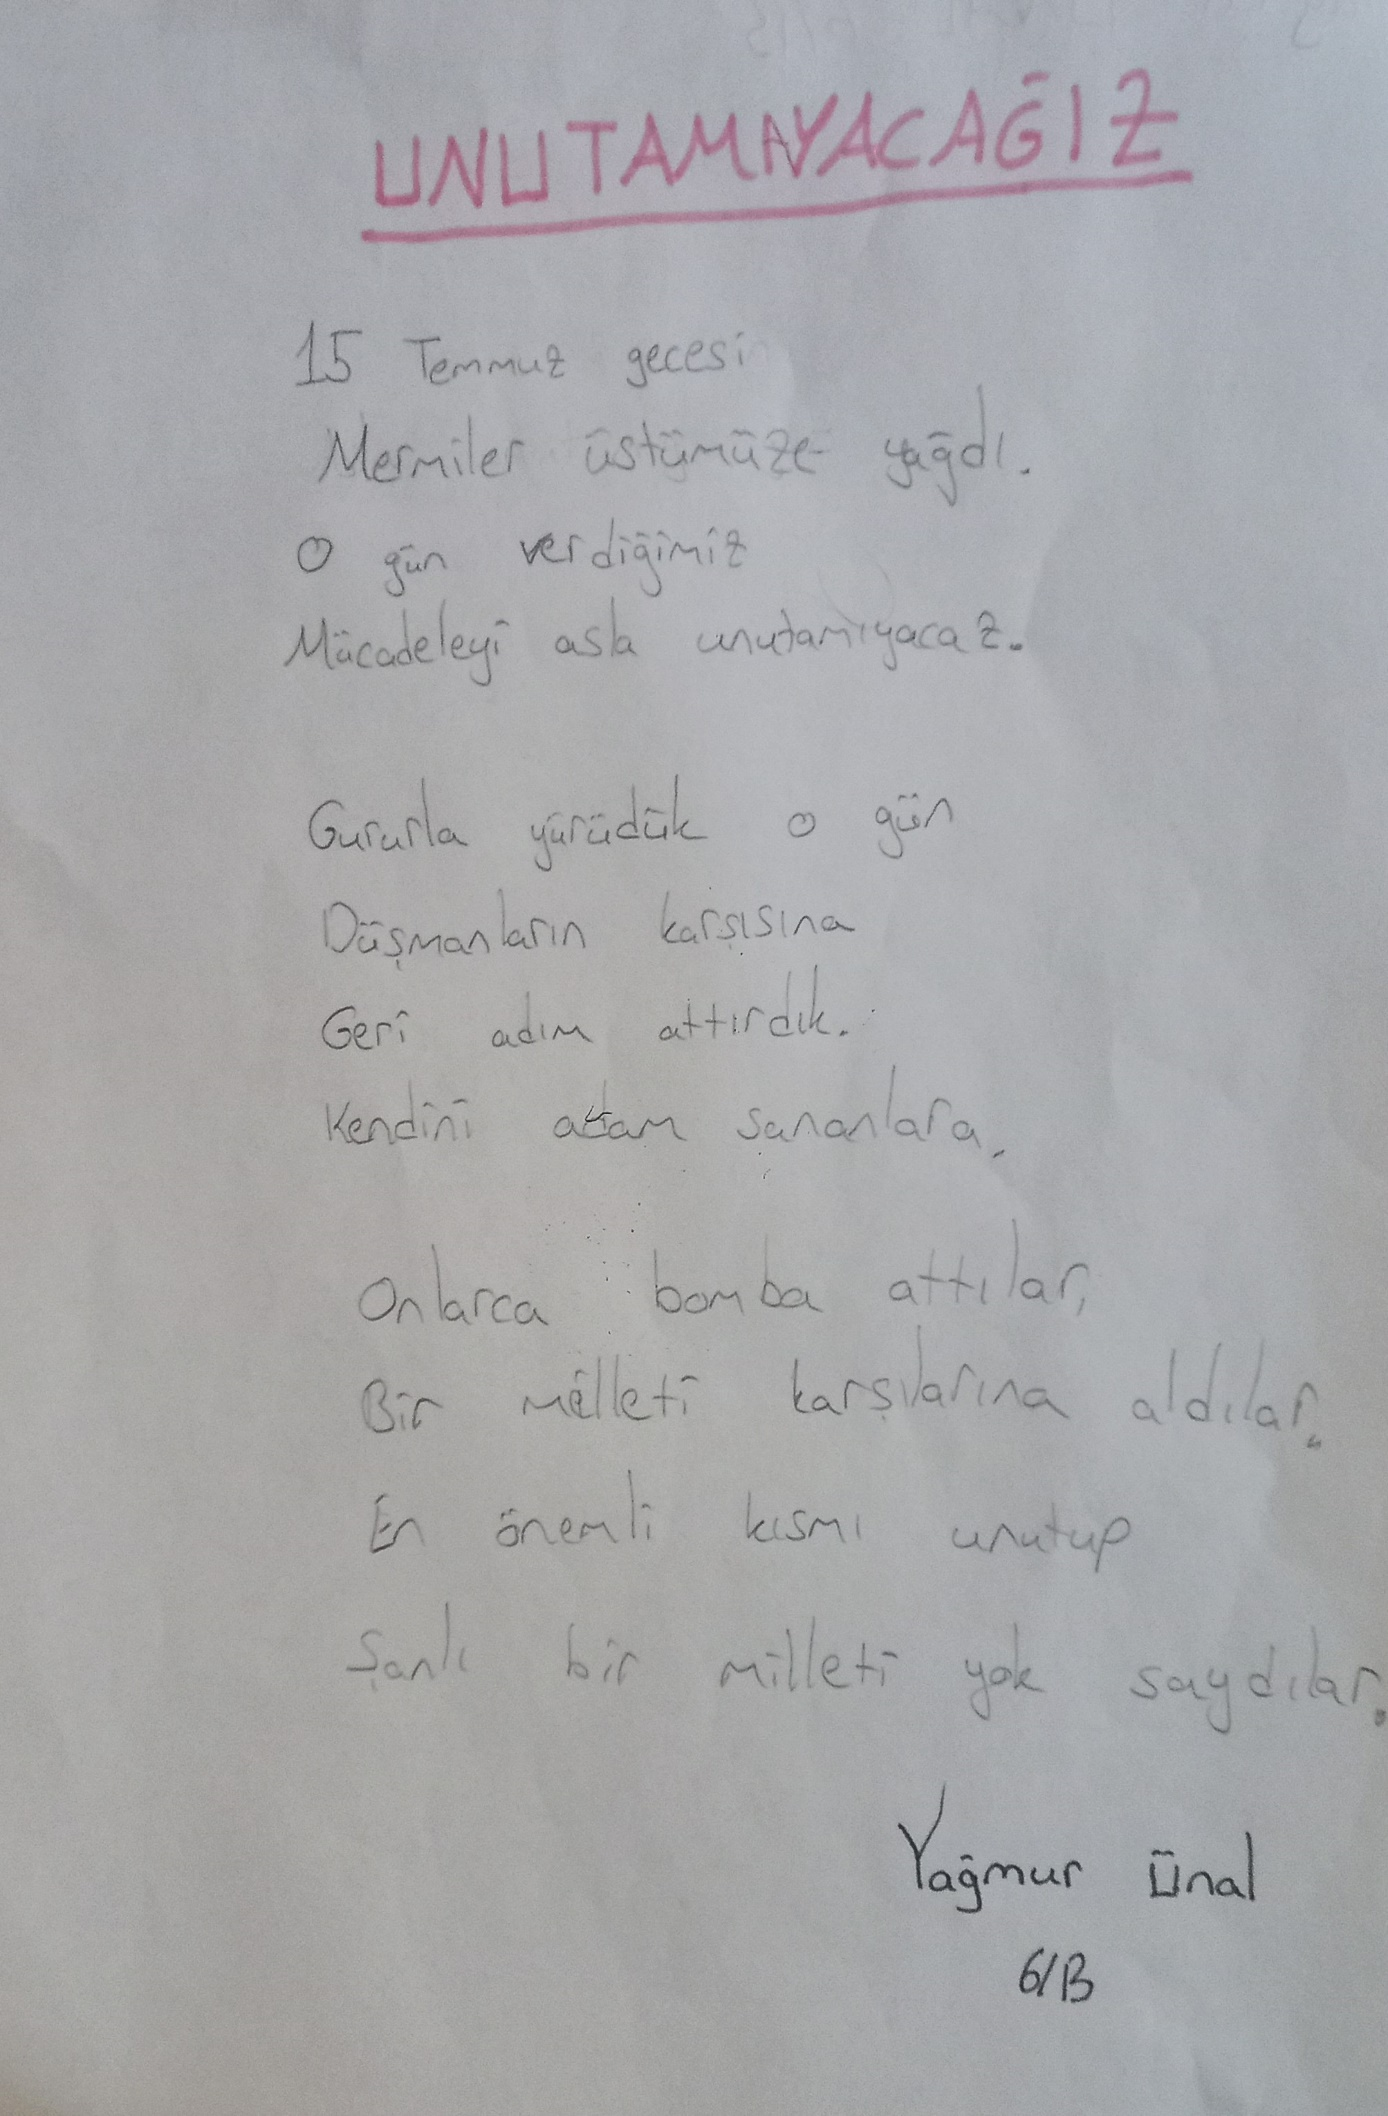 UNUTAMAYACAĞIZ
15 Temmuz gecesi
Mermiler üstümüze yağdı.
O gün verdiğimiz
Mücadeleyi asla unutamıyacaz.
Gururla yürüdük o gün
Düşmanların karşısına
Geri adım attırdık.
Kendini adam sananlara.
Onlarca bomba attılar,
Bir milleti karşılarına aldılar.
En önemli kısmı unutup
Şanlı bir milleti yok saydılar.
Yağmur Ünal
6/B